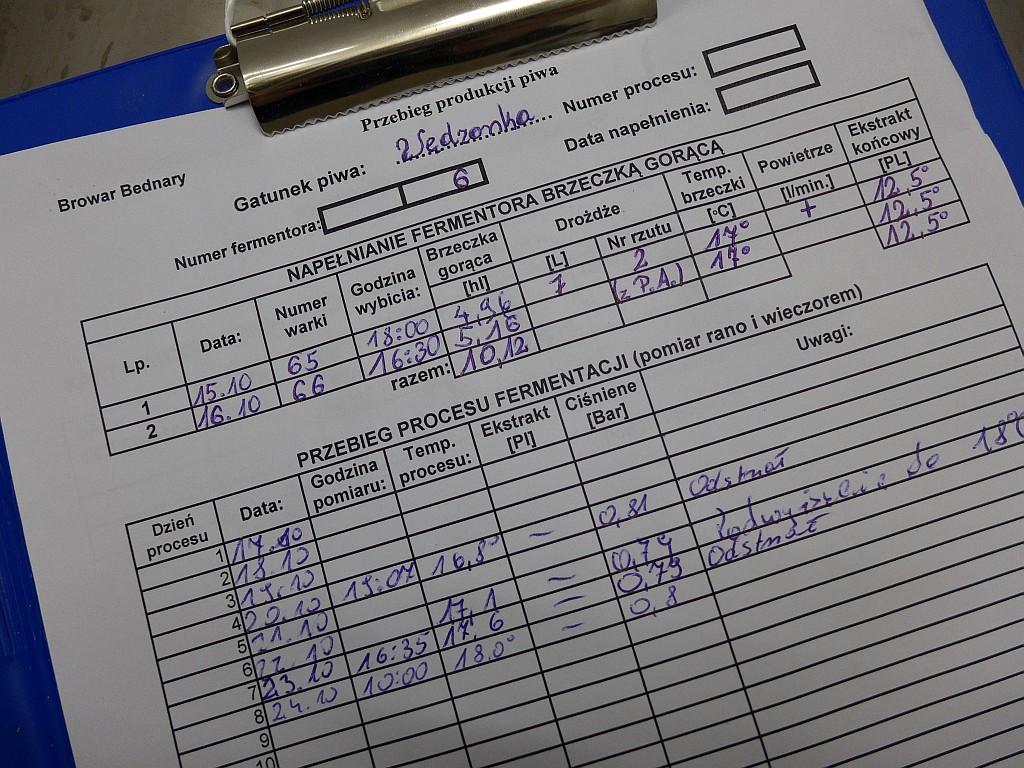 Przebieg produkcji piwa
Browar Bednary
Gatunek piwa: Wędzonka
Numer procesu:
Numer fermentora: 6
Data napełnienia:
NAPEŁNIANIE FERMENTORA BRZECZKĄ GORĄCĄ
Lp. Data: Numer warki Godzina wybicia: Brzeczka gorąca [hl] Drożdże [L] Nr rzutu Temp. brzeczki [°C] Powietrze [l/min.] Ekstrakt końcowy [PL]
1 15.10 65 18:00 4,96 7 2 17° + 12,5°
2 16.10 66 16:30 5,16 (z P.A.) 17° 12,5°
razem: 10,12 12,5°
PRZEBIEG PROCESU FERMENTACJI (pomiar rano i wieczorem)
Dzień procesu Data: Godzina pomiaru: Temp. procesu: Ekstrakt [Pl] Ciśniene [Bar] Uwagi:
1 17.10
2 18.10
3 19.10 19:07 16,8° – 0,81 Odstrzał
4 20.10
5 21.10 17,1 – 0,74 do 18°C
6 22.10 16:35 17,6 – 0,79 Odstrzał
7 23.10 10:00 18.0° – 0,8
8 24.10
9
10